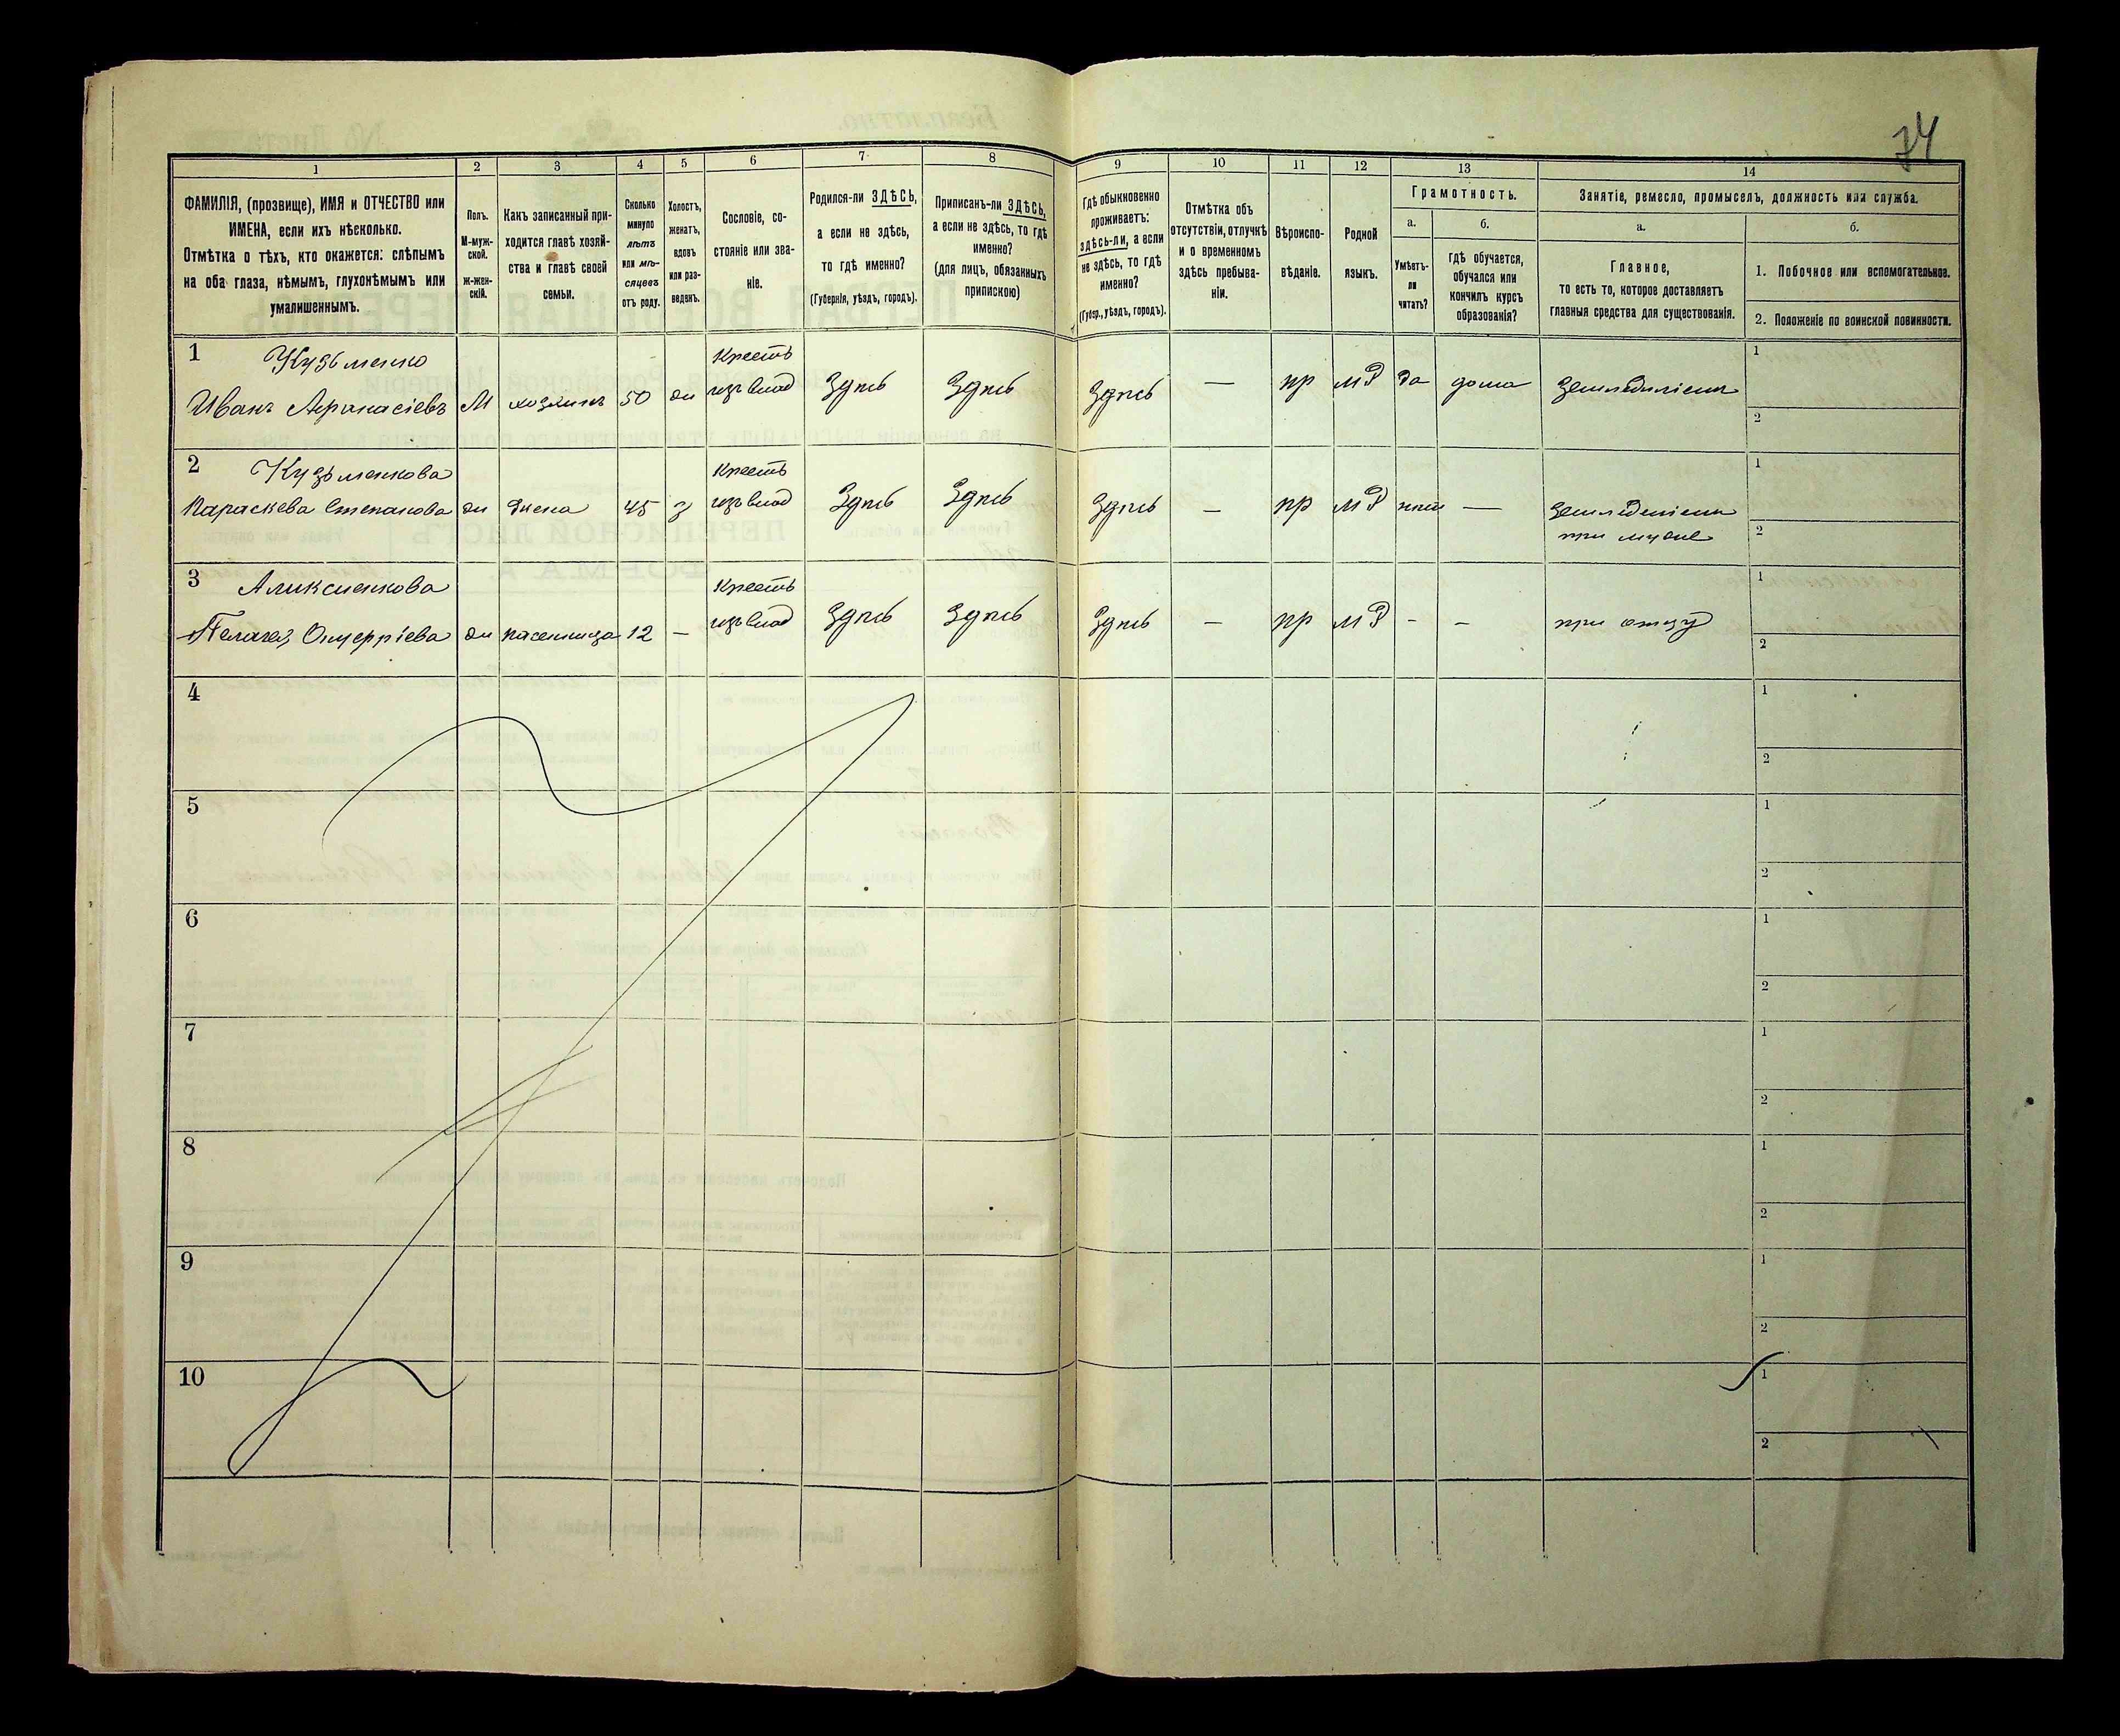 74
1 2 3 4 5 6 7 8 9 10 11 12 13 14
ФАМИЛІЯ, (прозвище), ИМЯ и ОТЧЕСТВО или
ИМЕНА, если ихъ нѣсколько.
Отмѣтка о тѣхъ, кто окажется: слѣпымъ
на оба глаза, нѣмымъ, глухонѣмымъ или
умалишеннымъ.
Полъ.
М-муж-
ской.
ж-жен-
скій.
Какъ записанный при-
ходится главѣ хозяй-
ства и главѣ своей
семьи.
Сколько
минуло
лѣтъ
или мѣ-
сяцевъ
отъ роду.
Холостъ,
женатъ,
вдовъ
или раз-
веденъ.
Сословіе, со-
стояніе или зва-
ніе.
Родился-ли ЗДѢСЬ,
а если не здѣсь,
то гдѣ именно?
(Губернія, уѣздъ, городъ).
Приписанъ-ли ЗДѢСЬ,
а если не здѣсь, то гдѣ
именно?
(для лицъ, обязанныхъ
припискою)
Гдѣ обыкновенно
проживаетъ:
здѣсь-ли, а если
не здѣсь, то гдѣ
именно?
(Губер., уѣздъ, городъ).
Отмѣтка объ
отсутствіи, отлучкѣ
и о временномъ
здѣсь пребыва-
ніи.
Вѣроиспо-
вѣданіе.
Родной
языкъ.
Грамотность.
а.
Умѣетъ-
ли
читать?
б.
гдѣ обучается,
обучался или
кончилъ курсъ
образованія?
Занятіе, ремесло, промыселъ, должность или служба.
а.
Главное,
то есть то, которое доставляетъ
главныя средства для существованія.
б.
1. Побочное или вспомогательное.
2. Положеніе по воинской повинности.
1 Кузьменко Кресть 1
Иванъ Афанасіевъ М хозяинъ 50 ж изъ влад Здѣсь Здѣсь Здѣсь — пр мР да дома Земледѣліемъ
2
2 Кузьменкова Кресть 1
Параскева Степанова ж жена 45 з изъ влад Здѣсь Здѣсь Здѣсь — пр мР нѣтъ — Земледѣліемъ
при мужѣ 2
3 Аликсиенкова Кресть 1
Пелагея Онуфріева ж 12 — изъ влад Здѣсь Здѣсь Здѣсь — пр мР - - при отцу
2
4 1
2
5 1
2
6 1
2
7 1
2
8 1
2
9 1
2
10 1
2